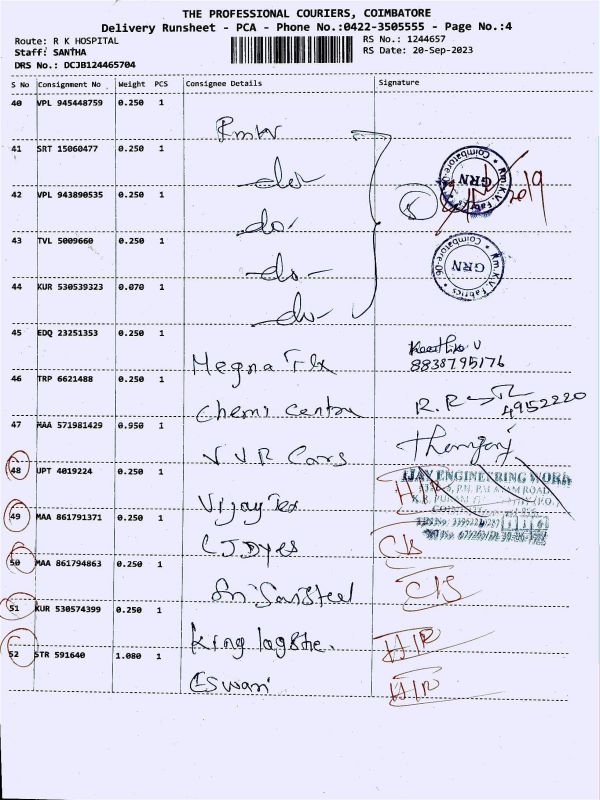 THE PROFESSIONAL COURIERS, COIMBATORE
Delivery Runsheet - PCA - Phone No.:0422-3505555 - Page No.:4
Route: R K HOSPITAL
RS No.: 1244657
Staff: SANTHA
RS Date: 20-Sep-2023
DRS No.: DCJB124465704
S No Consignment No Weight PCS Consignee Details Signature
40 VPL 945448759 0.250 1
41 SRT 15060477 0.250 1 -do-
42 VPL 943890535 0.250 1 -do-
43 TVL 5009660 0.250 1 -do-
44 KUR 530539323 0.070 1 -do-
Rm.K.V. Fabrics Coimbatore-06 GRN
5
Rm.K.V. Fabrics Coimbatore-06 GRN
45 EDQ 23251353 0.250 1 Megna Tex
8838795176
46 TRP 6621488 0.250 1 Chemi Centre R.R 4952220
47 MAA 571981429 0.950 1 V V R Cars
48 UPT 4019224 0.250 1 Vijay Tex
IJAY ENGINEERING WORK
49 MAA 861791371 0.250 1 C J Dyes
50 MAA 861794863 0.250 1 Sri Sai Steel
51 KUR 530574399 0.250 1 King
52 STR 591640 1.080 1 Eswari